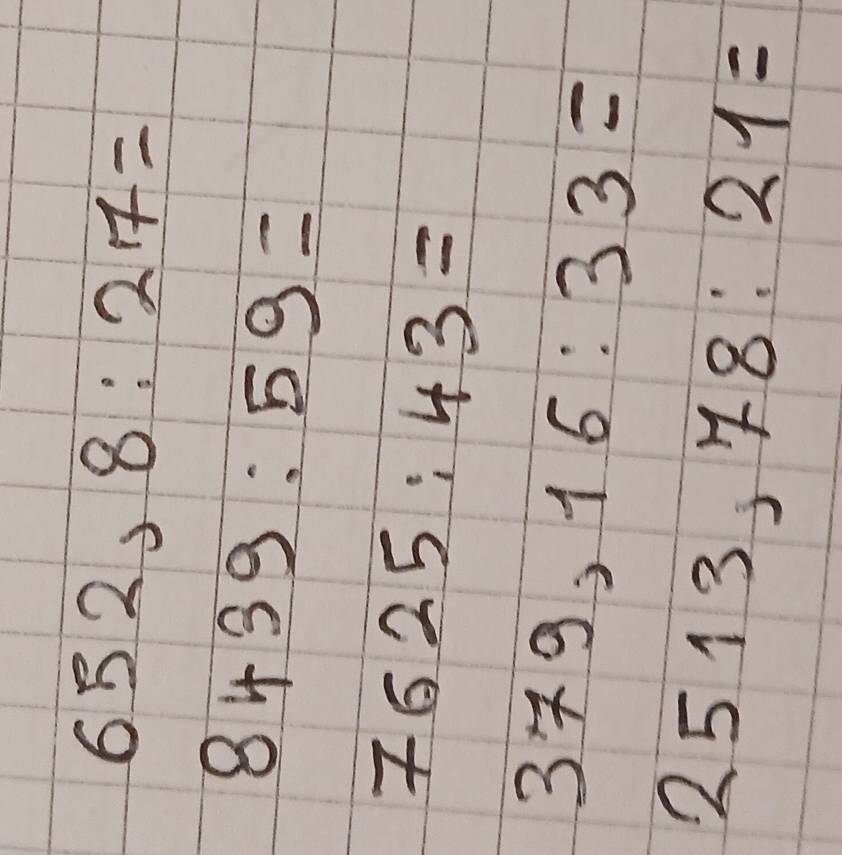 652,8:27=
8439:59=
7625:43=
379,16:33=
2513,78:21=